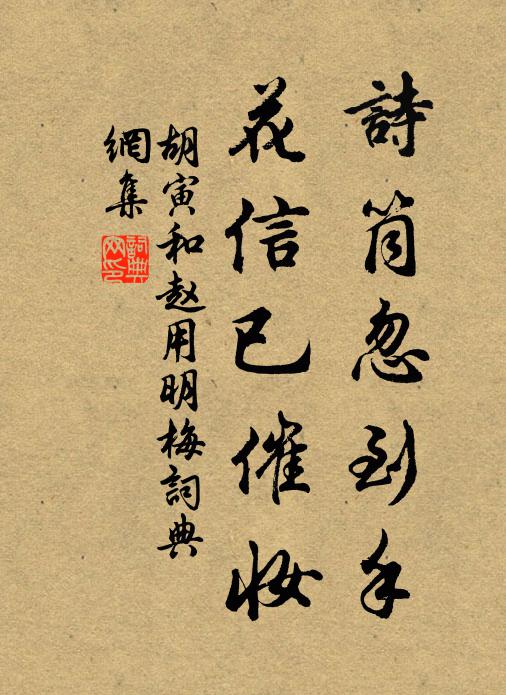 詩筒忽到手
花信已催妝
胡寅和赵用明梅詞典
網集
詞典网印